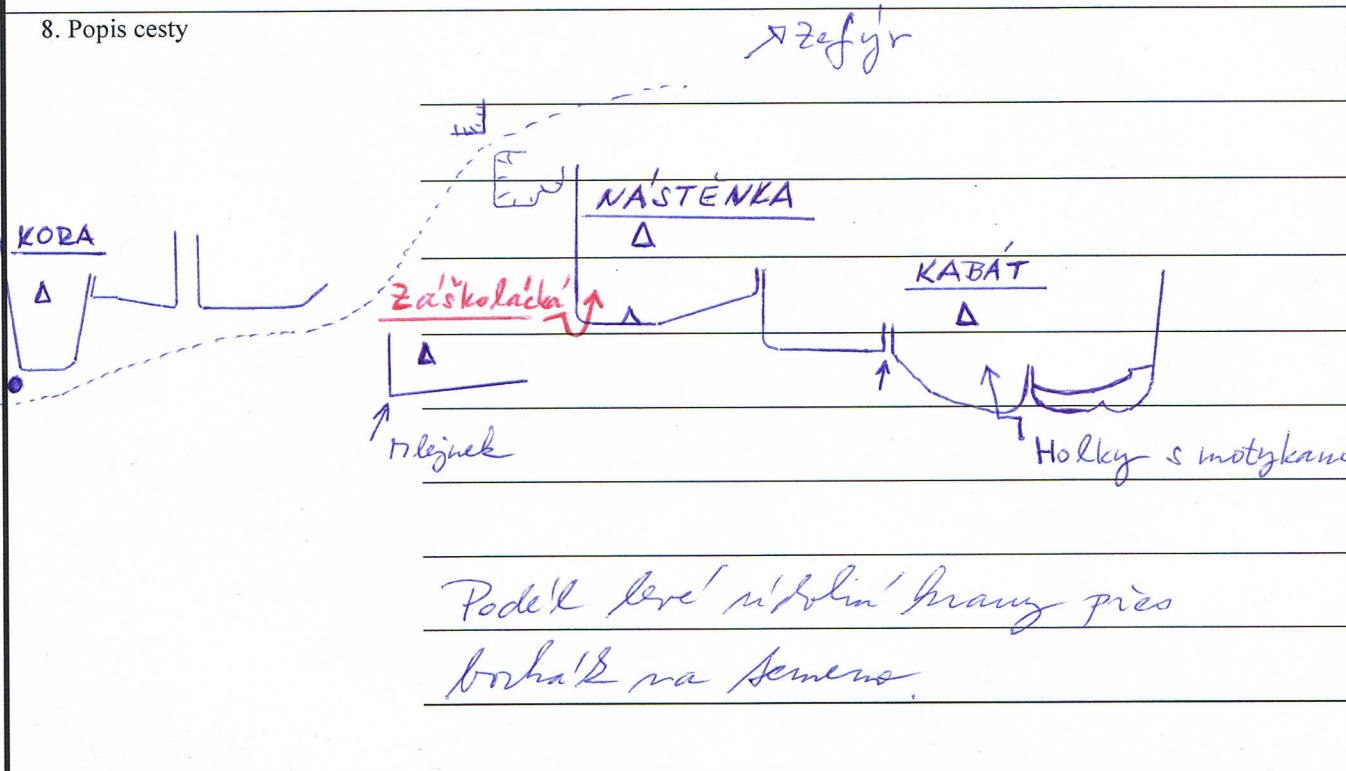 8. Popis cesty
Zefýr
NÁSTĚNKA
KORA
KABÁT
Záškolácká
mlejnek
Holky s motykami
Podél levé údolní hrany přes
borhák na temeno.